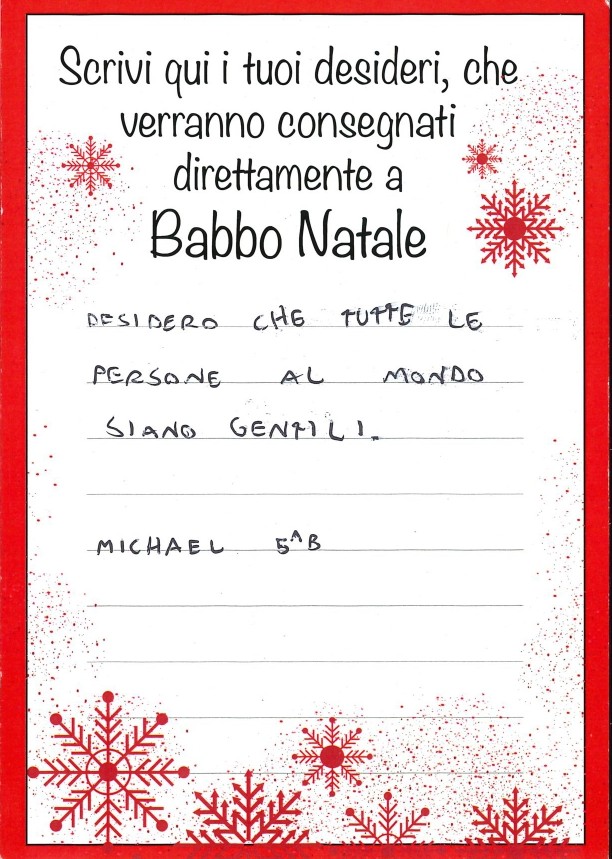 Scrivi qui i tuoi desideri, che
verranno consegnati
direttamente a
Babbo Natale
DESIDERO CHE TUTTE LE
PERSONE AL MONDO
SIANO GENTILI.
MICHAEL 5^B